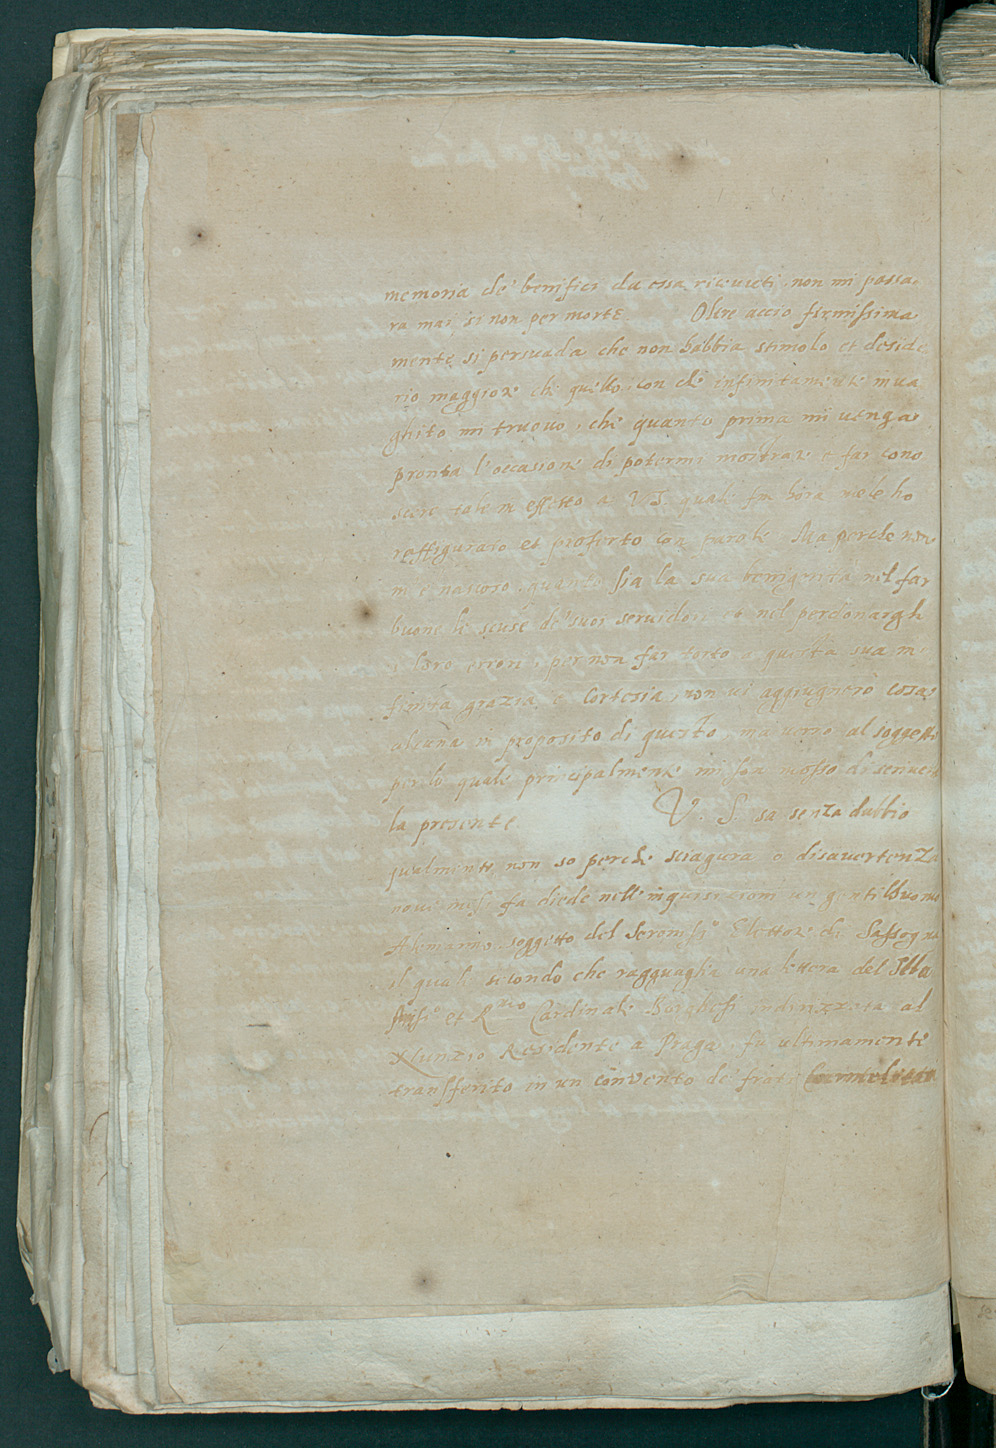 memoria de' benifici da essa riceuuti, non mi passa,
ra mai si non per morte. Oltre accio firmissima
mente si persuada che non habbia stimolo et deside
rio maggiore che quello, con che infinitamente inua
ghito mi truouo, che quanto prima mi uenga
pronta l'occasione di potermi mostrare e far cono
scere tale in effetto a V.S. quale fin hora mele ho
raffigurato et proferto con parole. Ma perche non
m'è nascoso, quanto sia la sua benigenità nel far
buone le scuse de' suoi seruidori, e nel perdonargli
i loro errori, per non far torto a questa sua in
finita grazia e Cortesia, non ui aggiugnerò cosa
alcuna in proposito di questo, ma uerrò al soggetto
per lo quale principalmente mi son mosso di scriuere
la presente. V. S. sa senza dubbio
qualmente, non so perche sciagura o disauertenza
noue mesi fa diede nell'inquisicioni un gentilhuomo
Alemanno, soggetto del Serenissi.º Elettore di Sassogna
il quale secondo che ragguaglia una lettera del Illu
strissi.º et R.mo Cardinale Borghesi indirizzata al
Nunzio Residente a Praga, fu ultimamente
transferito in un conuento de' frati Carmelitani